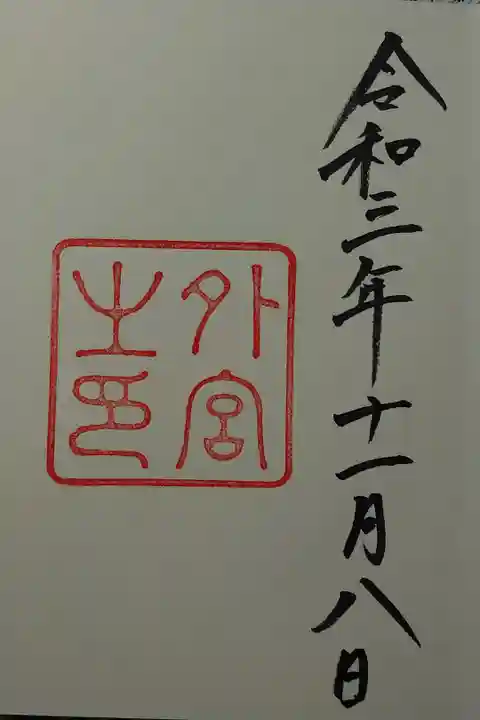 令和三年十一月八日
外宮
之印